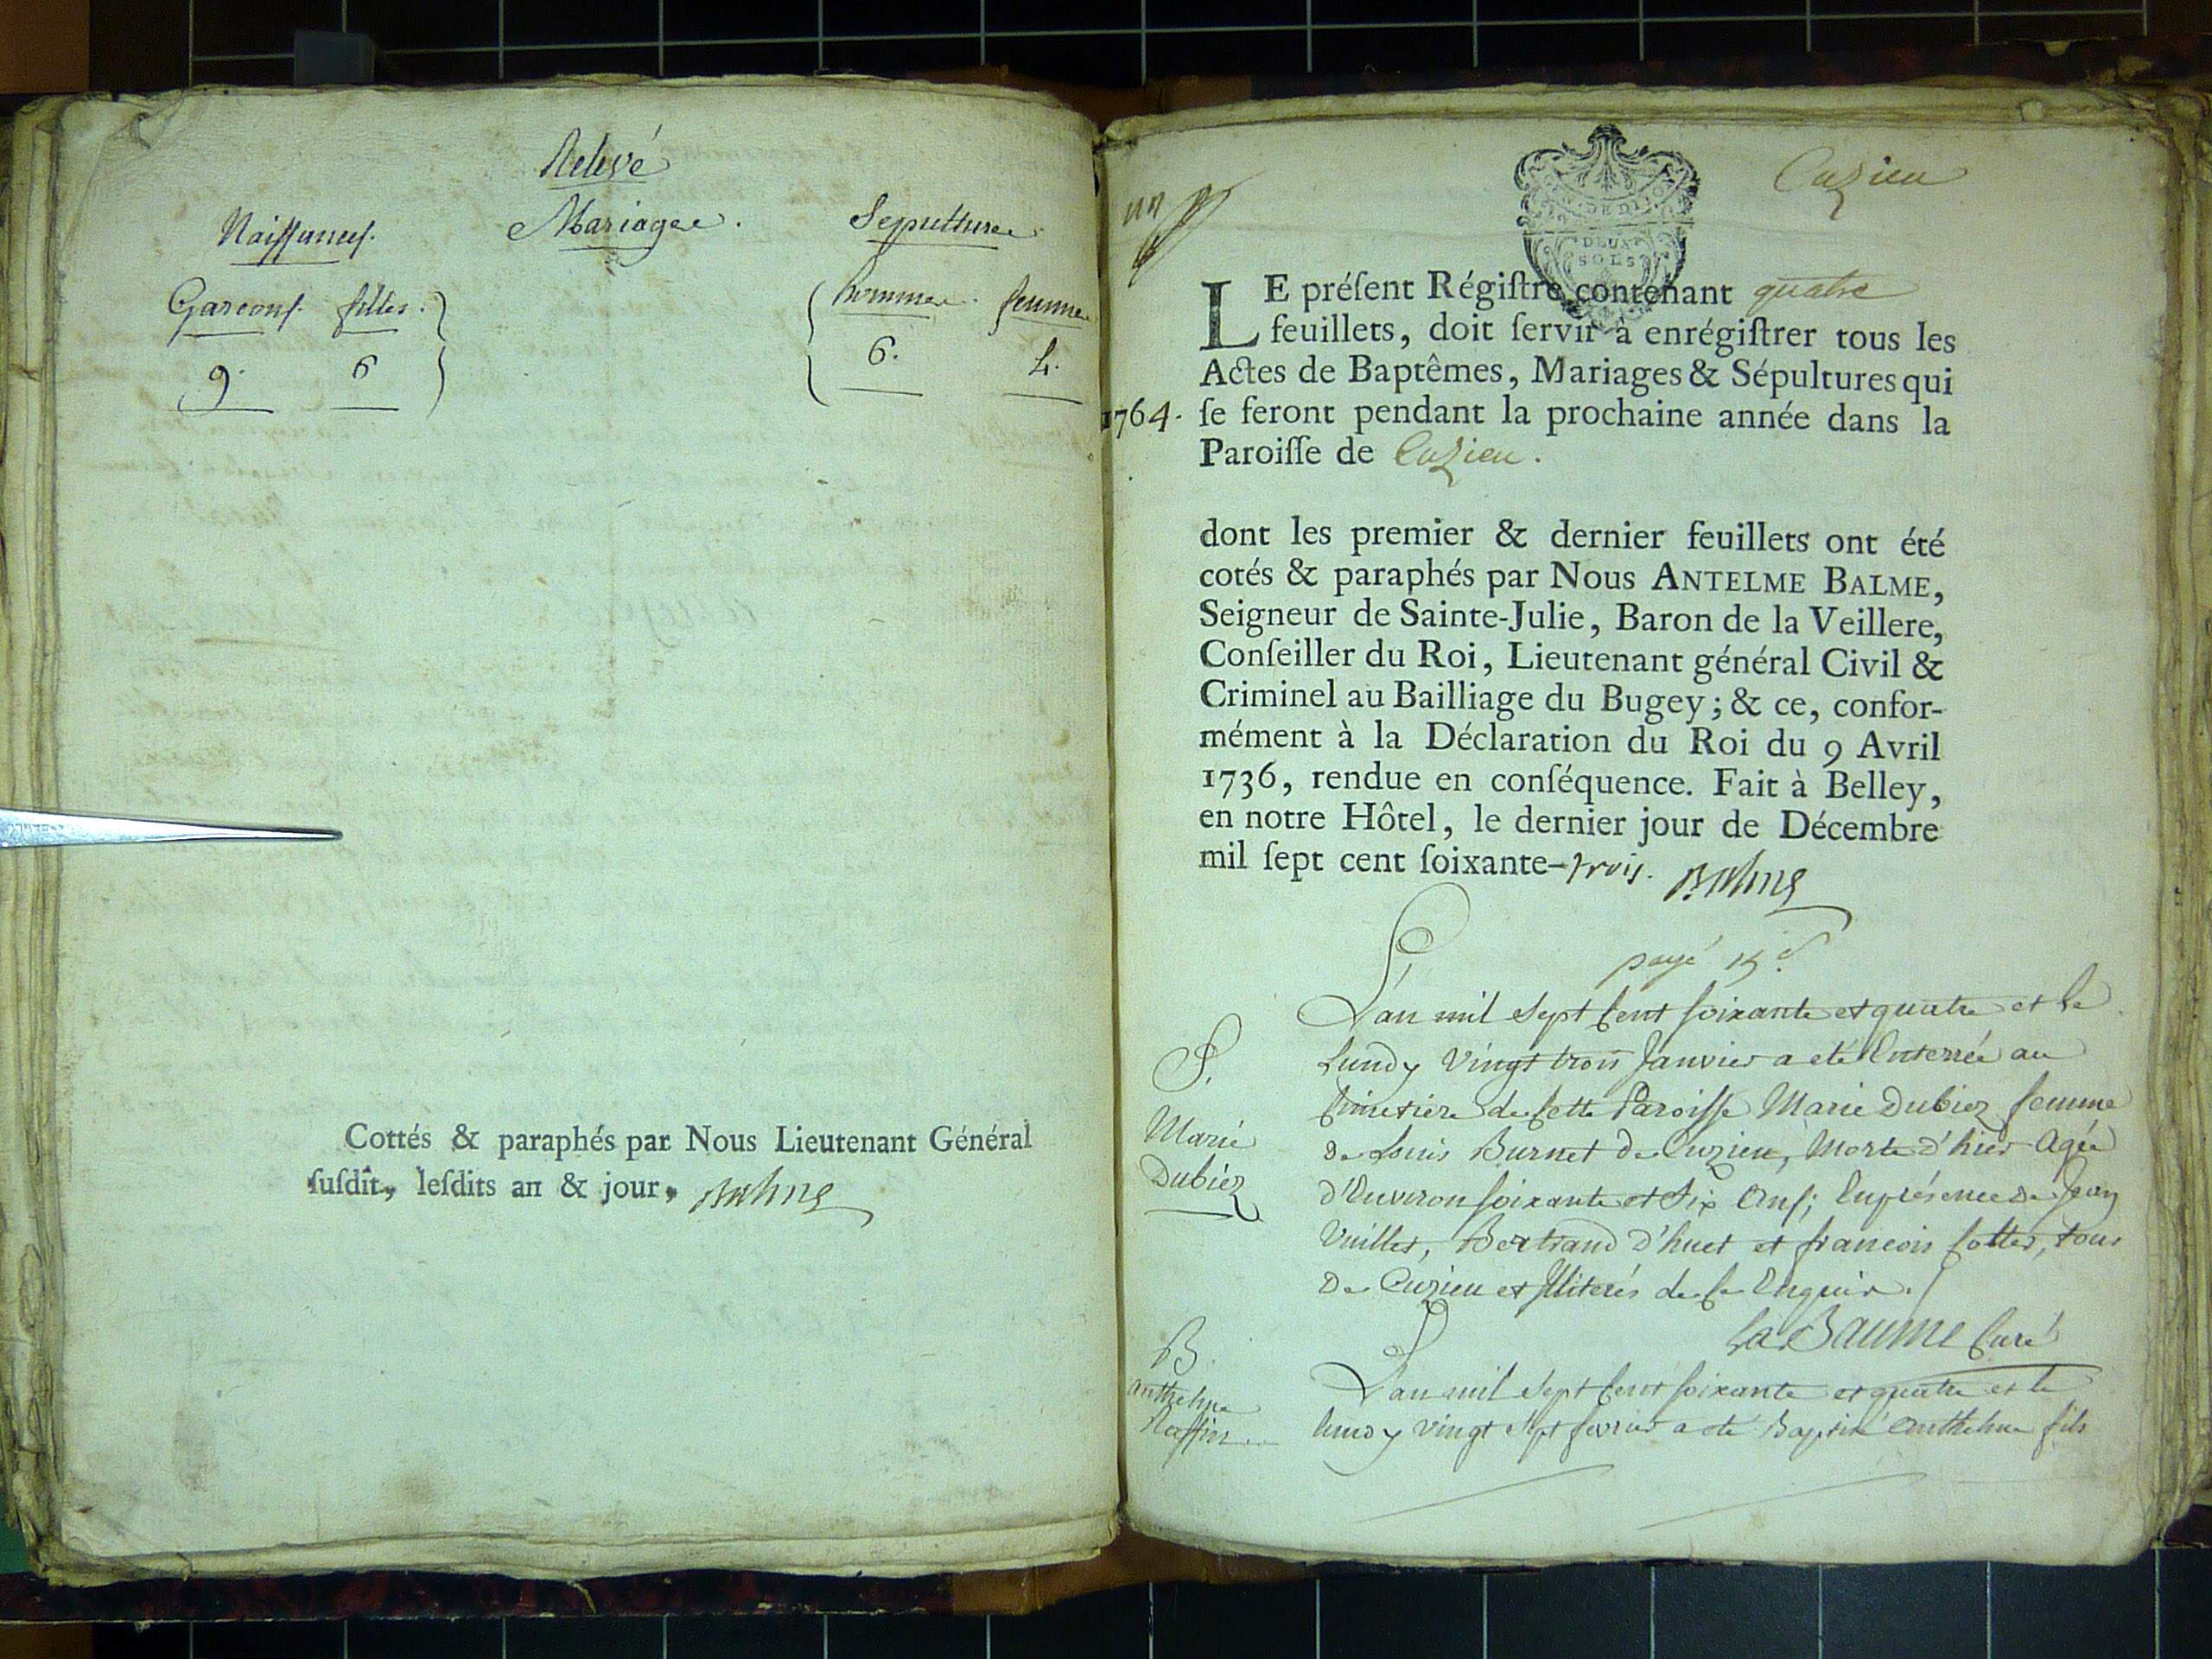 Relevé
Naissances. Mariages. Sepultures
Garcons. filles. hommes. femmes
9. 6 6. 4.
Cottés & paraphés par Nous Lieutenant Général
ſuſdit, leſdits an & jour, Balme
un
Cuzieu
DEUX
SOLS
LE préſent Régiſtre contenant quatre
feuillets, doit ſervir à enrégiſtrer tous les
Actes de Baptêmes, Mariages & Sépultures qui
1764. ſe feront pendant la prochaine année dans la
Paroiſſe de Cuzieu.
dont les premier & dernier feuillets ont été
cotés & paraphés par Nous ANTELME BALME,
Seigneur de Sainte-Julie, Baron de la Veillere,
Conſeiller du Roi, Lieutenant général Civil &
Criminel au Bailliage du Bugey; & ce, confor-
mément à la Déclaration du Roi du 9 Avril
1736, rendue en conſéquence. Fait à Belley,
en notre Hôtel, le dernier jour de Décembre
mil ſept cent ſoixante-trois. Balme
payé
L'an mil Sept Cent soixante et quatre et le
Lundy vingt trois Janvier a eté Enterrée au
S.
Marie
Dubiez
Cimetiere de Cette Paroisse Marie Dubiez femme
de Louis Burnet de Cuzieu, Morte d'hier Agée
d'Environ soixante et Six Ans; En présence de Jean
Vuillet, Bertrand D'huet et francois Cottet, tous
De Cuzieu et Illiterés de ce Enquis.
La Baume Curé
B.
Anthelme
Raffin
L'an mil Sept Cent soixante et quatre et le
lundy vingt Sept fevrier a eté Baptisé Anthelme fils